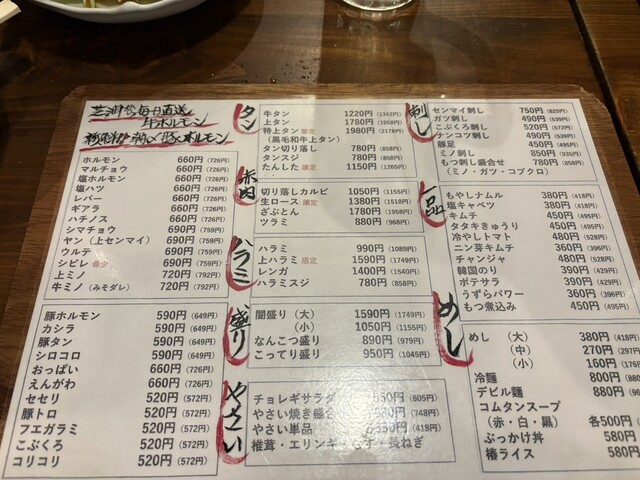 芝浦から毎日直送
牛ホルモン
ホルモン 660円(726円)
マルチョウ 660円(726円)
塩ホルモン 660円(726円)
塩ハツ 660円(726円)
レバー 660円(726円)
ギアラ 660円(726円)
ハチノス 660円(726円)
シマチョウ 690円(759円)
ヤン(上センマイ) 690円(759円)
ウルテ 690円(759円)
シビレ 希少 690円(759円)
上ミノ 720円(792円)
牛ミノ(みそダレ) 720円(792円)
豚ホルモン 590円(649円)
カシラ 590円(649円)
豚タン 590円(649円)
シロコロ 590円(649円)
おっぱい 660円(726円)
えんがわ 660円(726円)
セセリ 520円(572円)
豚トロ 520円(572円)
フエガラミ 520円(572円)
こぶくろ 520円(572円)
コリコリ 520円(572円)
タン
牛タン 1220円(1342円)
上タン 1780円(1958円)
特上タン 限定 1980円(2178円)
(黒毛和牛上タン)
タン切り落し 780円(858円)
タンスジ 780円(858円)
たんした 限定 1150円(1265円)
赤肉
切り落しカルビ 1050円(1155円)
生ロース 限定 1380円(1518円)
ざぶとん 1780円(1958円)
ツラミ 880円(968円)
ハラミ
ハラミ 990円(1089円)
上ハラミ 限定 1590円(1749円)
レンガ 1400円(1540円)
ハラミスジ 780円(858円)
盛り
闇盛り(大) 1590円(1749円)
(小) 1050円(1155円)
なんこつ盛り 890円(979円)
こってり盛り 950円(1045円)
やさい
チョレギサラダ 550円(605円)
やさい焼き盛合 680円(748円)
やさい単品 各380円(418円)
椎茸・エリンギ・なす・長ねぎ
刺し
センマイ刺し 750円(825円)
ガツ刺し 490円(539円)
こぶくろ刺し 520円(572円)
ナンコツ刺し 490円(539円)
豚足 450円(495円)
ミノ刺し 850円(935円)
もつ刺し盛合せ 780円(858円)
(ミノ・ガツ・コブクロ)
一品
もやしナムル 380円(418円)
塩キャベツ 380円(418円)
キムチ 450円(495円)
タタキきゅうり 450円(495円)
冷やしトマト 480円(528円)
ニン芽キムチ 360円(396円)
チャンジャ 480円(528円)
韓国のり 390円(429円)
ポテサラ 390円(429円)
うずらパワー 360円(396円)
もつ煮込み 450円(495円)
めし
めし (大) 380円(418円)
(中) 270円(297円)
(小) 160円(176円)
冷麺 800円(880円)
デビル麺 880円
コムタンスープ
(赤・白・黒) 各500円
ぶっかけ丼 580円
椿ライス 580円